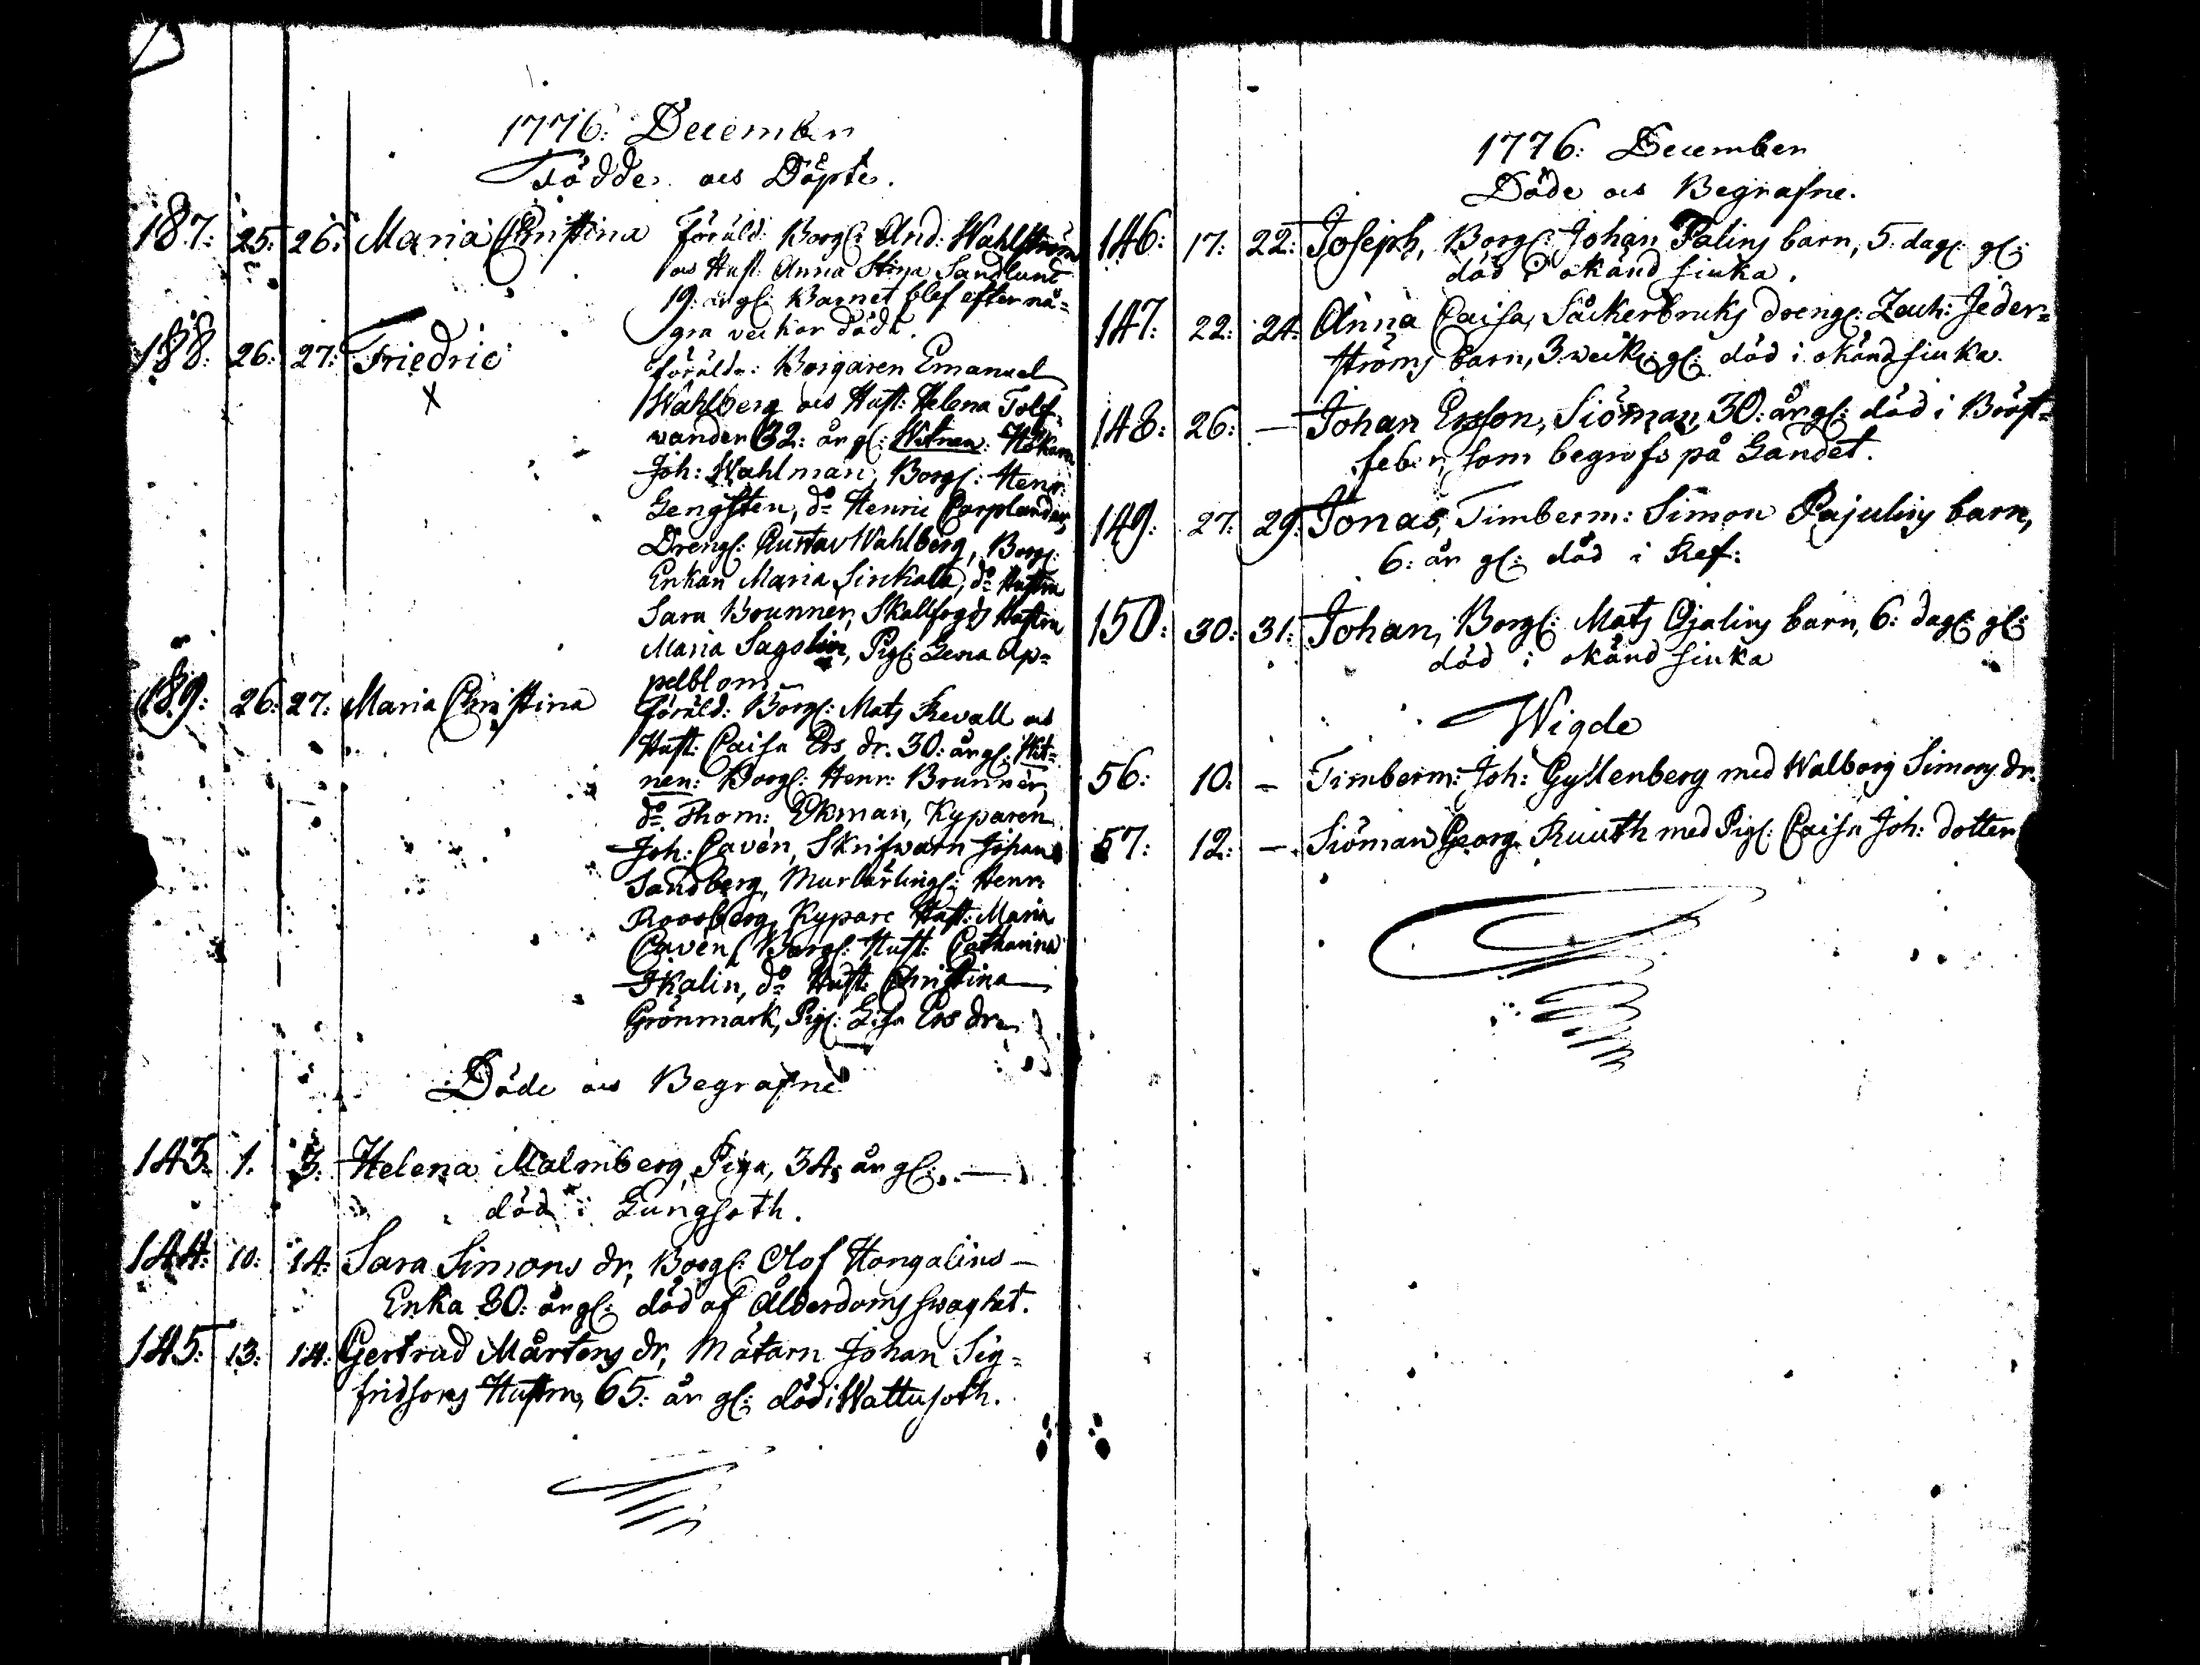 1776: December
Födde. ocs Döpte.
187: 25: 26: Maria Christina Föräld: Borg: And: Wahlström
ocs Hust: Anna Stina Sandlund
19. år gl: Barnet blef efter nå=
gra veckor dödt.
188: 26: 27: Friedric föräldr: Borgaren Emanuel
X Wahlberg ocs Hust: Helena Tolf
wander 32: år gl: Witnen:
Joh: Wahlman, Borg: Henr:
Gengsten, do Henric Carplander,
Dreng: Gustav Wahlberg, Borg:
Enkan Maria Sinkala, do Hustru
Sara Brunner, Skallfogds Hustru
Maria Sagolin, Pig: Lena Ap=
pelblom
189: 26: 27: Maria Christina föräld: Borg: Mats Revall ocs
Hust: Caisa Ers dr. 30: år gl: Wit=
nen: Borg: Henr: Brunner,
do Thom: Ekman, Kyparen
Joh: Cavén, Skrifwarn Johan
Sandberg, Murlärling: Henr:
Roosberg, Kypare Hust: Maria
Cavén, Borg: Hust: Catharina
Ikalin, do Hust: Christina
Grönmark, Pig: Lisa Ers dr.
Döde ocs Begrafne
143. 1. 3. Helena Malmberg, Piga, 34 år gl: —
död i Lungsoth.
144: 10: 14: Sara Simons dr, Borg: Olof Hongalins —
Enka 80: år gl: död af Ålderdoms swaghet.
145: 13: 14: Gertrud Mårtens dr, Mätarn Johan Sig=
fridsons Hustru, 65: år gl: död i Wattusoth.
1776: December
Döde ocs Begrafne.
146: 17: 22: Joseph, Borg: Johan Palins barn, 5: dag: gl:
död i okänd siuka.
147: 22: 24: Anna Caisa, Såckerbruks dreng: Zach: Jeder=
ströms barn, 3 weck: gl: död i okänd siuka.
148: 26: — Johan Ersson, Siöman, 30: år gl: död i Bröst=
feber, som begrofs på Landet.
149: 27: 29: Jonas, Timberm: Simon Pajulins barn,
6: år gl: död i Ref:
150: 30: 31: Johan, Borg: Mats Ojalins barn, 6: dag: gl:
död i okänd siuka
Wigde
56: 10: — Timberm: Joh: Gyllenberg med Walborg Simons dr.
57: 12: — Siöman Georg Ruuth med Pig: Caisa Joh: dotter